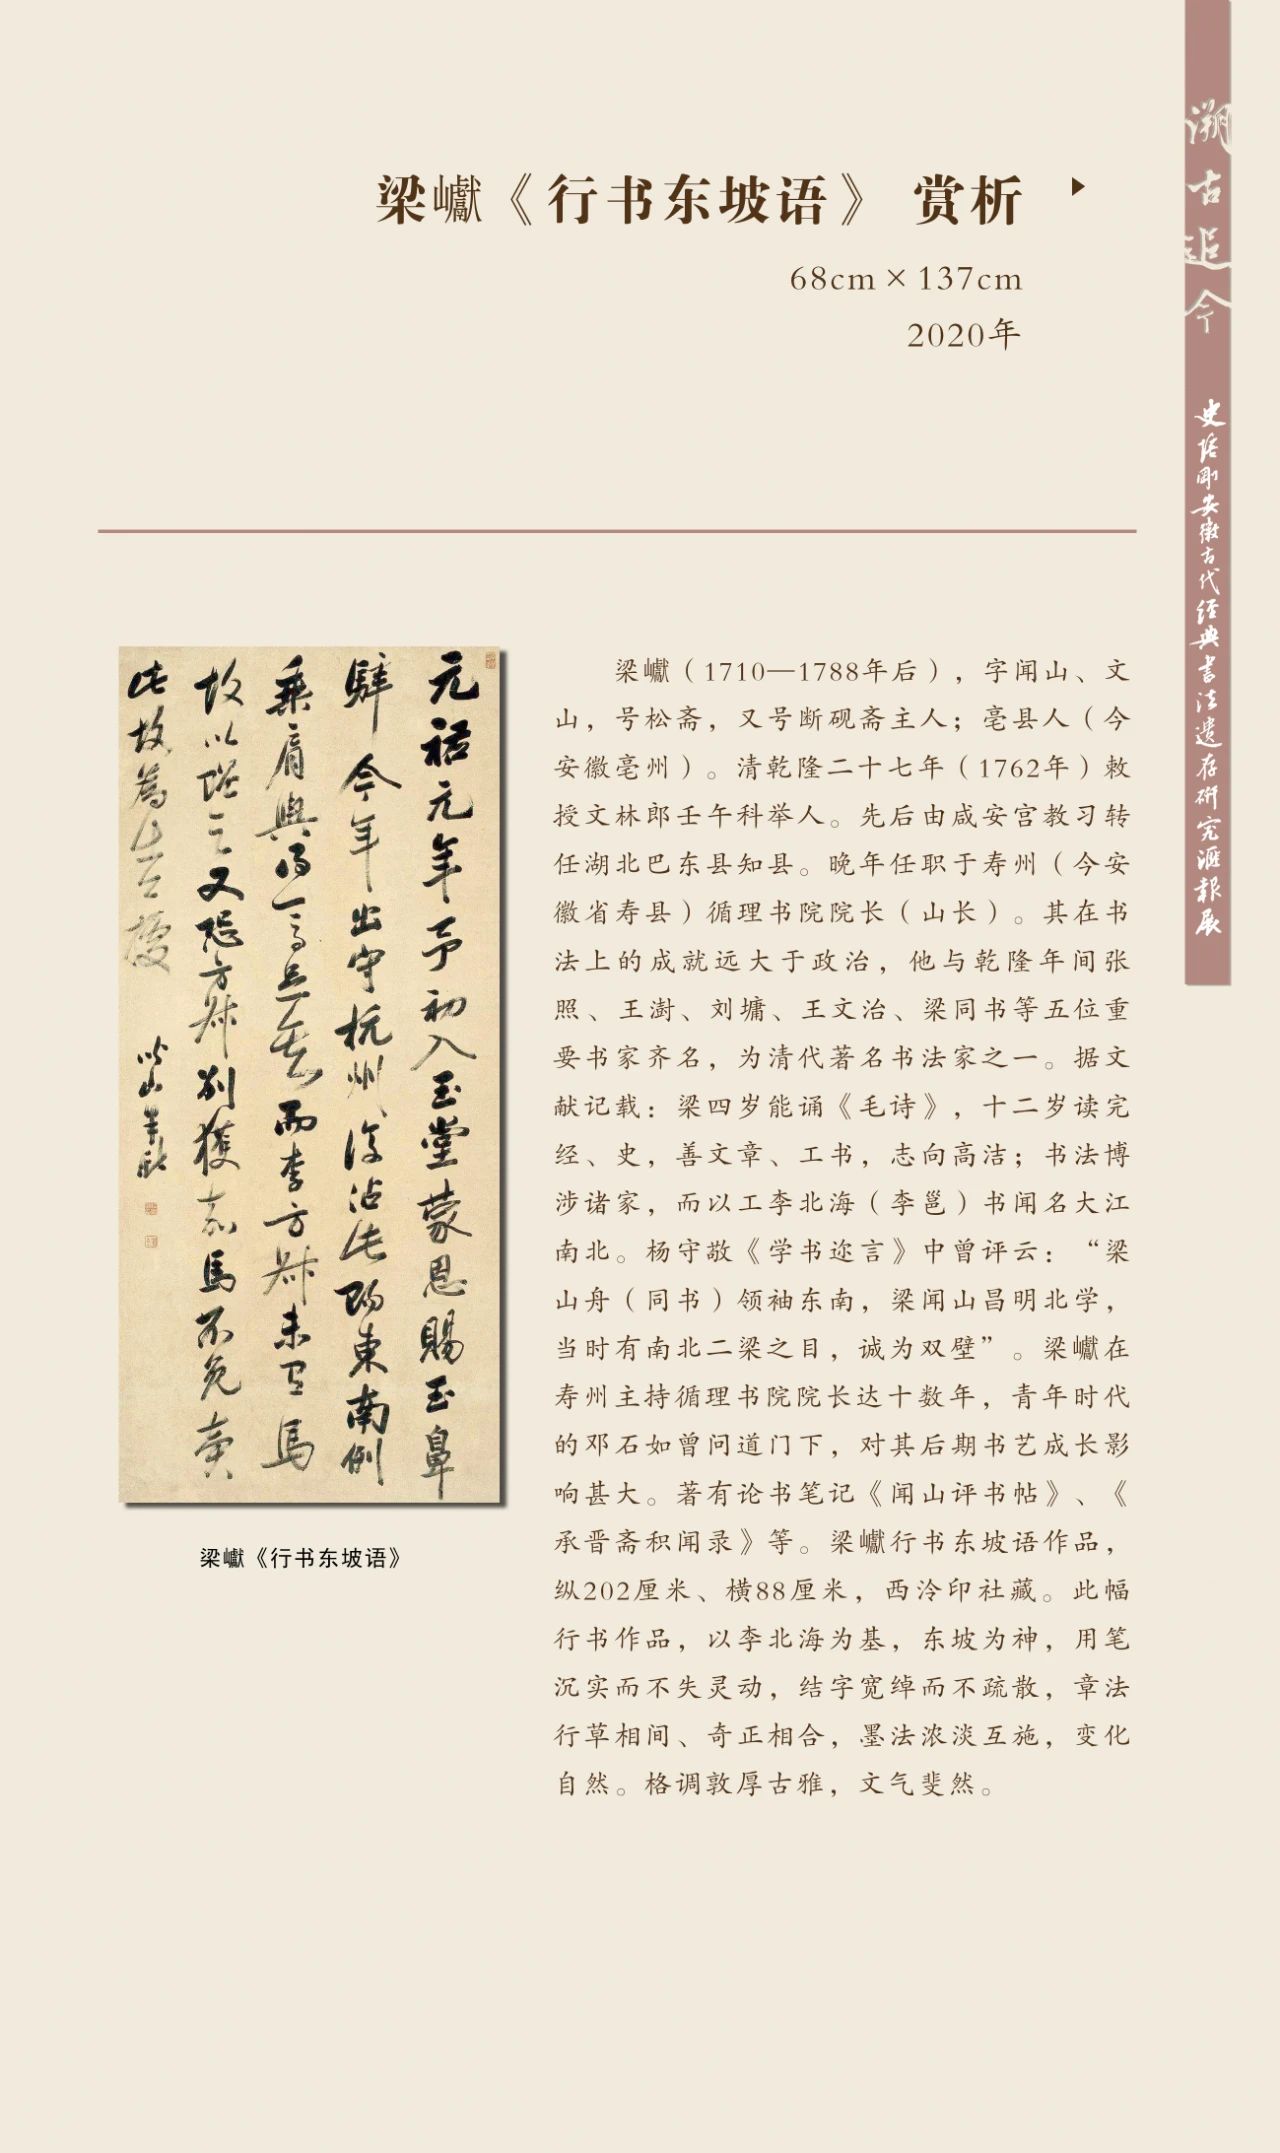 梁巘《行书东坡语》 赏析
68cm×137cm
2020年
溯古追今
史培刚安徽古代经典书法遗存研究汇报展
元祐元年予初入玉堂蒙恩赐玉鼻
骍今年出守杭州复沾此赐东南例
乘肩舆得一马足矣而李方叔未有马
故以赠之又恐方叔别获嘉马不免卖
此故为出公据
闻山梁巘
梁巘《行书东坡语》
梁巘（1710—1788年后），字闻山、文
山，号松斋，又号断砚斋主人；亳县人（今
安徽亳州）。清乾隆二十七年（1762年）敕
授文林郎壬午科举人。先后由咸安宫教习转
任湖北巴东县知县。晚年任职于寿州（今安
徽省寿县）循理书院院长（山长）。其在书
法上的成就远大于政治，他与乾隆年间张
照、王澍、刘墉、王文治、梁同书等五位重
要书家齐名，为清代著名书法家之一。据文
献记载：梁四岁能诵《毛诗》，十二岁读完
经、史，善文章、工书，志向高洁；书法博
涉诸家，而以工李北海（李邕）书闻名大江
南北。杨守敬《学书迩言》中曾评云：“梁
山舟（同书）领袖东南，梁闻山昌明北学，
当时有南北二梁之目，诚为双壁”。梁巘在
寿州主持循理书院院长达十数年，青年时代
的邓石如曾问道门下，对其后期书艺成长影
响甚大。著有论书笔记《闻山评书帖》、《
承晋斋积闻录》等。梁巘行书东坡语作品，
纵202厘米、横88厘米，西泠印社藏。此幅
行书作品，以李北海为基，东坡为神，用笔
沉实而不失灵动，结字宽绰而不疏散，章法
行草相间、奇正相合，墨法浓淡互施，变化
自然。格调敦厚古雅，文气斐然。